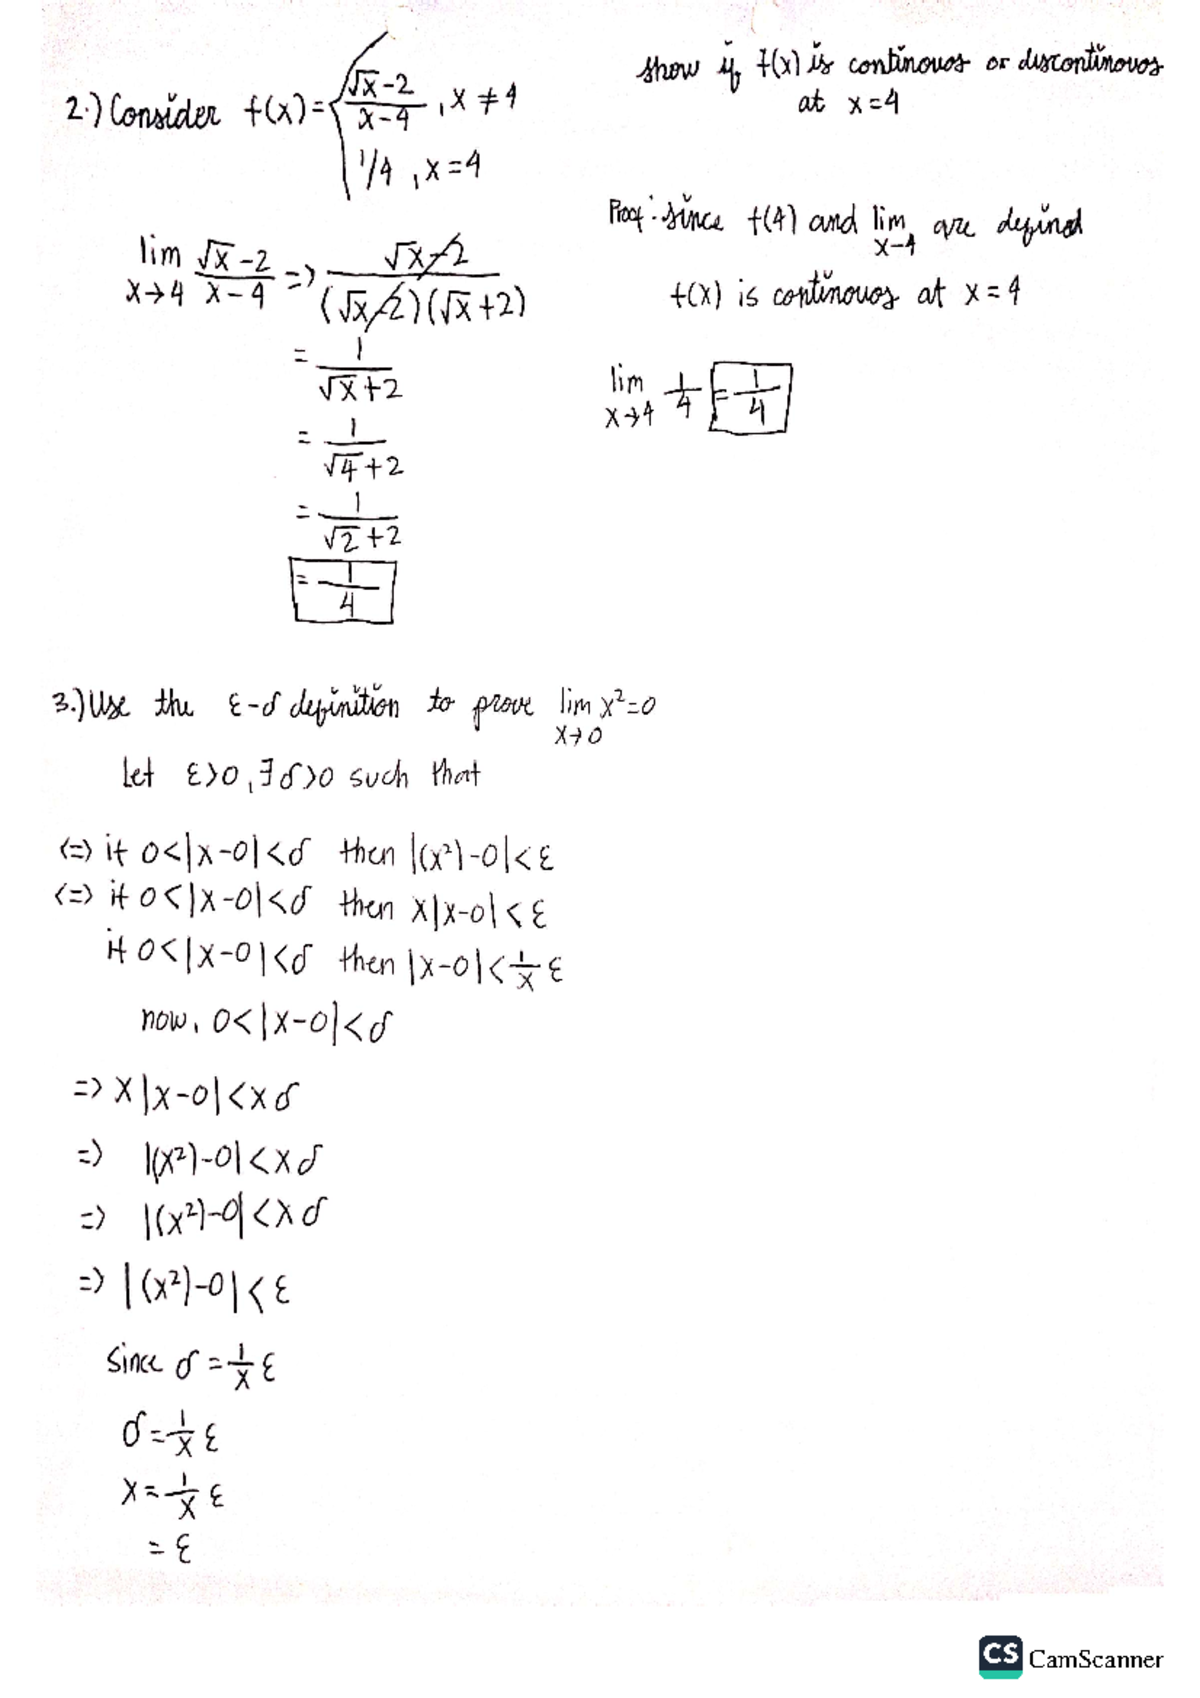 2.) Consider f(x) = { √x-2 / x-4 , x ≠ 4
1/4 , x=4
show if f(x) is continouos or discontinouos
at x=4
lim x→4 √x-2 / x-4 => √x-2 / (√x-2)(√x+2)
= 1 / √x+2
= 1 / √4+2
= 1 / √2+2
= 1/4
Proof: since f(4) and lim x-4 are defined
f(x) is continouos at x=4
lim x→4 1/4 = 1/4
3.) Use the ε-δ definition to prove lim x→0 x²=0
Let ε>0, ∃δ>0 such that
<=> if 0<|x-0|<δ then |(x²)-0|<ε
<=> if 0<|x-0|<δ then x|x-0|<ε
if 0<|x-0|<δ then |x-0|<1/x ε
now, 0<|x-0|<δ
=> x|x-0|<xδ
=> |(x²)-0|<xδ
=> |(x²)-0|<xδ
=> |(x²)-0|<ε
Since δ=1/x ε
δ=1/x ε
x=1/x ε
= ε
CS CamScanner